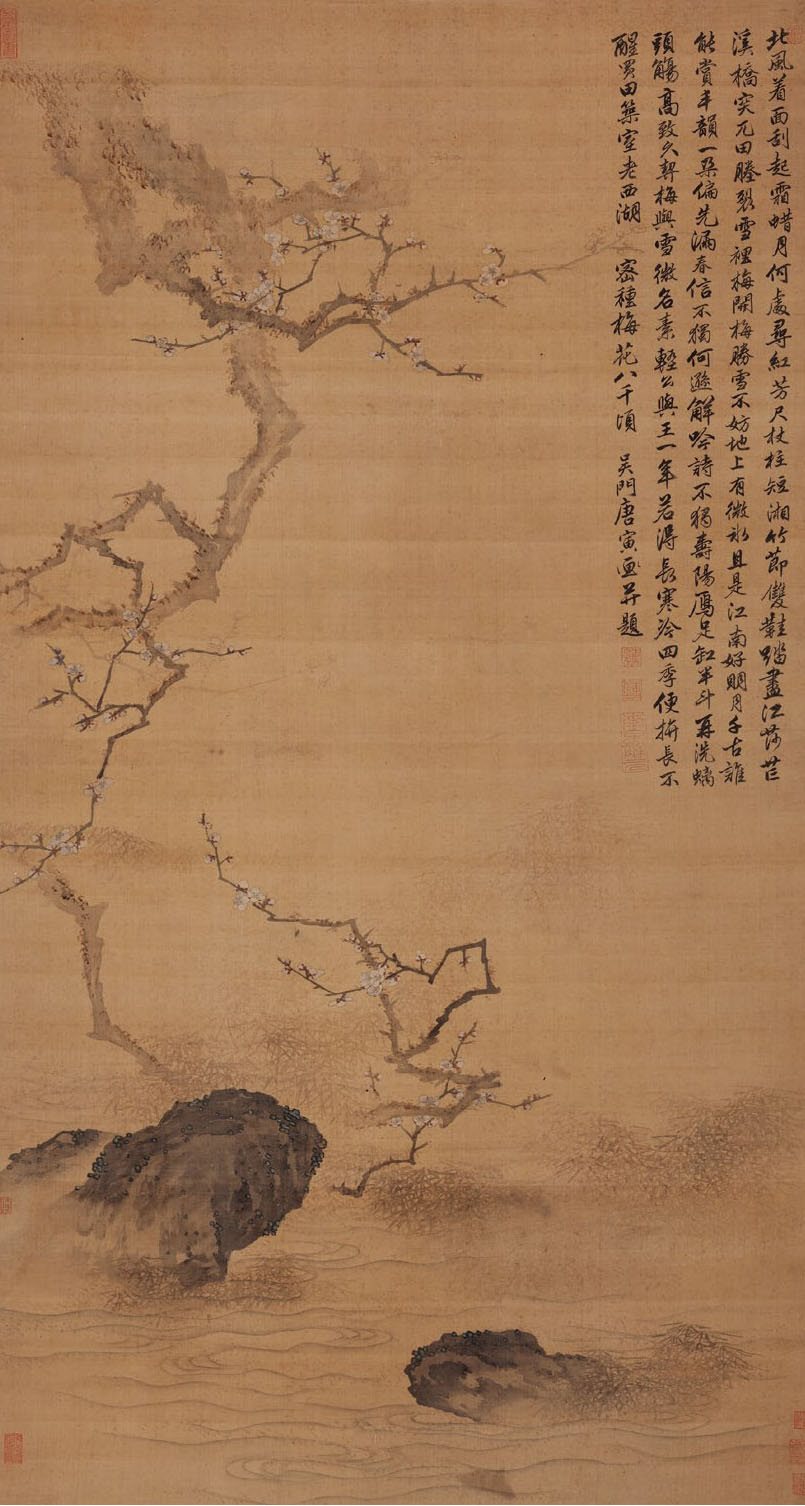 北風着面刮起霜蜡月何處尋紅芳尺杖柱短湘竹節雙鞋踏盡江莎芒
溪橋突兀田塍裂雪裡梅開梅勝雪不妨地上有微冰且是江南好明月千古誰
能賞丰韻一朶偏先漏春信不獨何遜解吟詩不獨壽陽
足缸半斗再洗螭
頭觴高致久契梅與雪微名素輕公與王一年若得長寒冷四季便拚長不
醒買田築室老西湖 密種梅花八千頃 吳門唐寅画并題